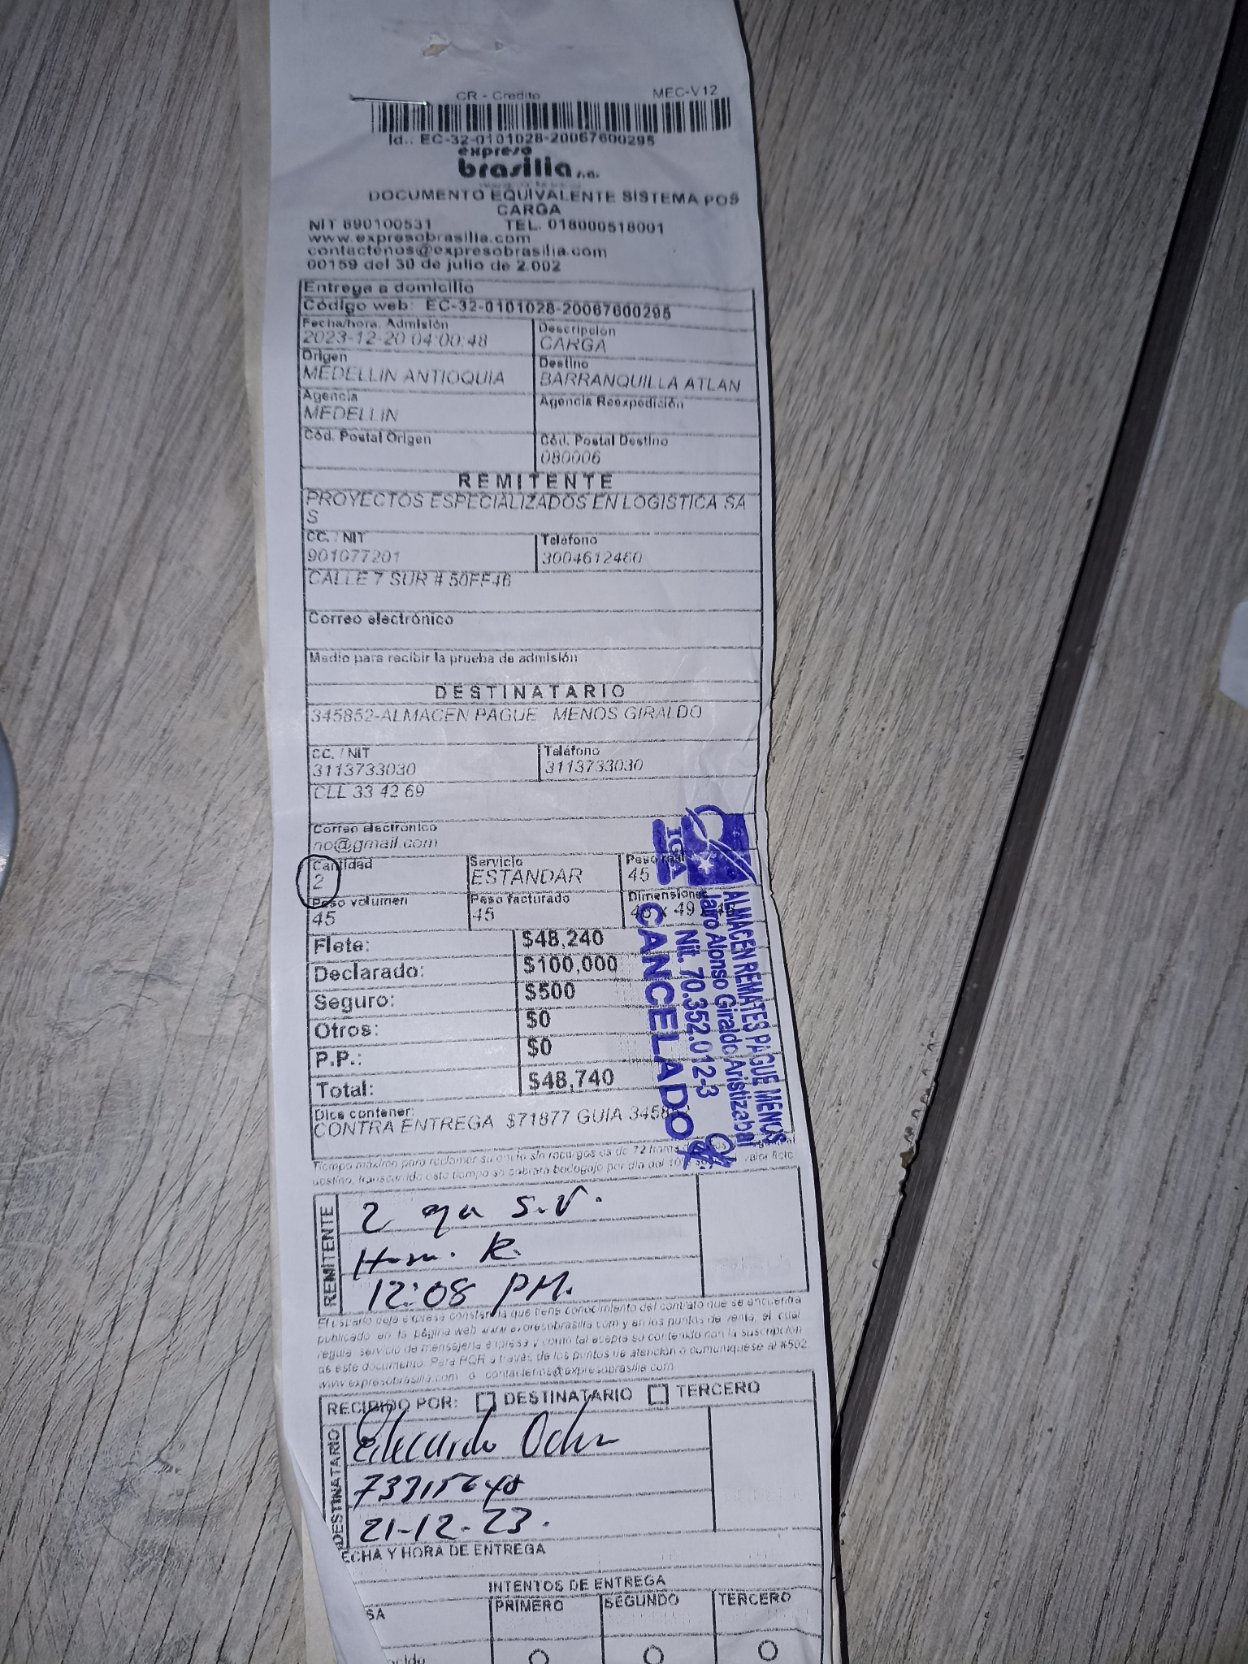 CR - Credito MEC-V12
Id.. EC-32-0101028-20067600295
expreso
brasilia s.a.
DOCUMENTO EQUIVALENTE SISTEMA POS
CARGA
NIT 890100531 TEL. 018000518001
www.expresobrasilia.com
contactenos@expresobrasilia.com
00159 del 30 de julio de 2.002
Entrega a domicilio
Código web: EC-32-0101028-20067600295
Fecha/hora. Admisión Descripción
2023-12-20 04:00:48 CARGA
Origen Destino
MEDELLIN ANTIOQUIA BARRANQUILLA ATLAN
Agencia Agencia Reexpedición
MEDELLIN
Cód. Postal Origen Cód. Postal Destino
080006
REMITENTE
PROYECTOS ESPECIALIZADOS EN LOGISTICA SA
S
CC. / NIT Teléfono
901077201 3004612460
CALLE 7 SUR # 50FF46
Correo electrónico
Medio para recibir la prueba de admisión
DESTINATARIO
345852-ALMACEN PAGUE MENOS GIRALDO
CC. / NIT Teléfono
3113733030 3113733030
CLL 33 42 69
Correo electronico
no@gmail.com
Cantidad Servicio Peso real
2 ESTANDAR 45
Peso volumen Peso facturado Dimensiones
45 45 49
Flete: $48,240
Declarado: $100,000
Seguro: $500
Otros: $0
P.P.: $0
Total: $48,740
Dice contener:
CONTRA ENTREGA $71877 GUIA 3458
IGA
ALMACEN REMATES PAGUE MENOS
Jairo Alonso Giraldo Aristizabal
Nit. 70.352.012-3
CANCELADO
Tiempo maximo para reclamar su envio sin recargos es de 72 horas
destino, transcurrido este tiempo se cobrara bodegaje por dia del 10% valor flete
REMITENTE
2 qu S.V.
R.
12:08 PM.
El usuario deja expresa constancia que tiene conocimiento del contrato que se encuentra
publicado en la página web www.expresobrasilia.com y en los puntos de venta, el cual
regula servicio de mensajeria expresa y como tal acepta su contenido con la suscripción
de este documento. Para PQR a través de los puntos de atención o comuníquese al #502
www.expresobrasilia.com o contactenos@expresobrasilia.com
RECIBIDO POR: DESTINATARIO TERCERO
DESTINATARIO
Eduardo Ochoa
73315640
21-12-23.
ECHA Y HORA DE ENTREGA
INTENTOS DE ENTREGA
SA PRIMERO SEGUNDO TERCERO